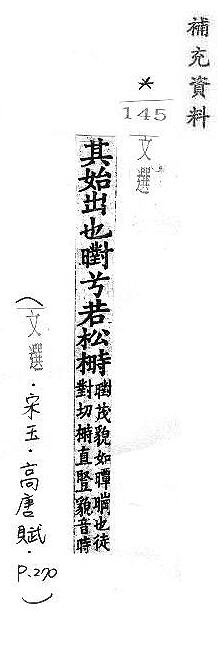 補充資料
*
145
文選
其始出也㬣兮若松榯
㬣茂貌如也徒
對切榯直豎貌音時
(文選·宋玉·高唐賦·P.270)